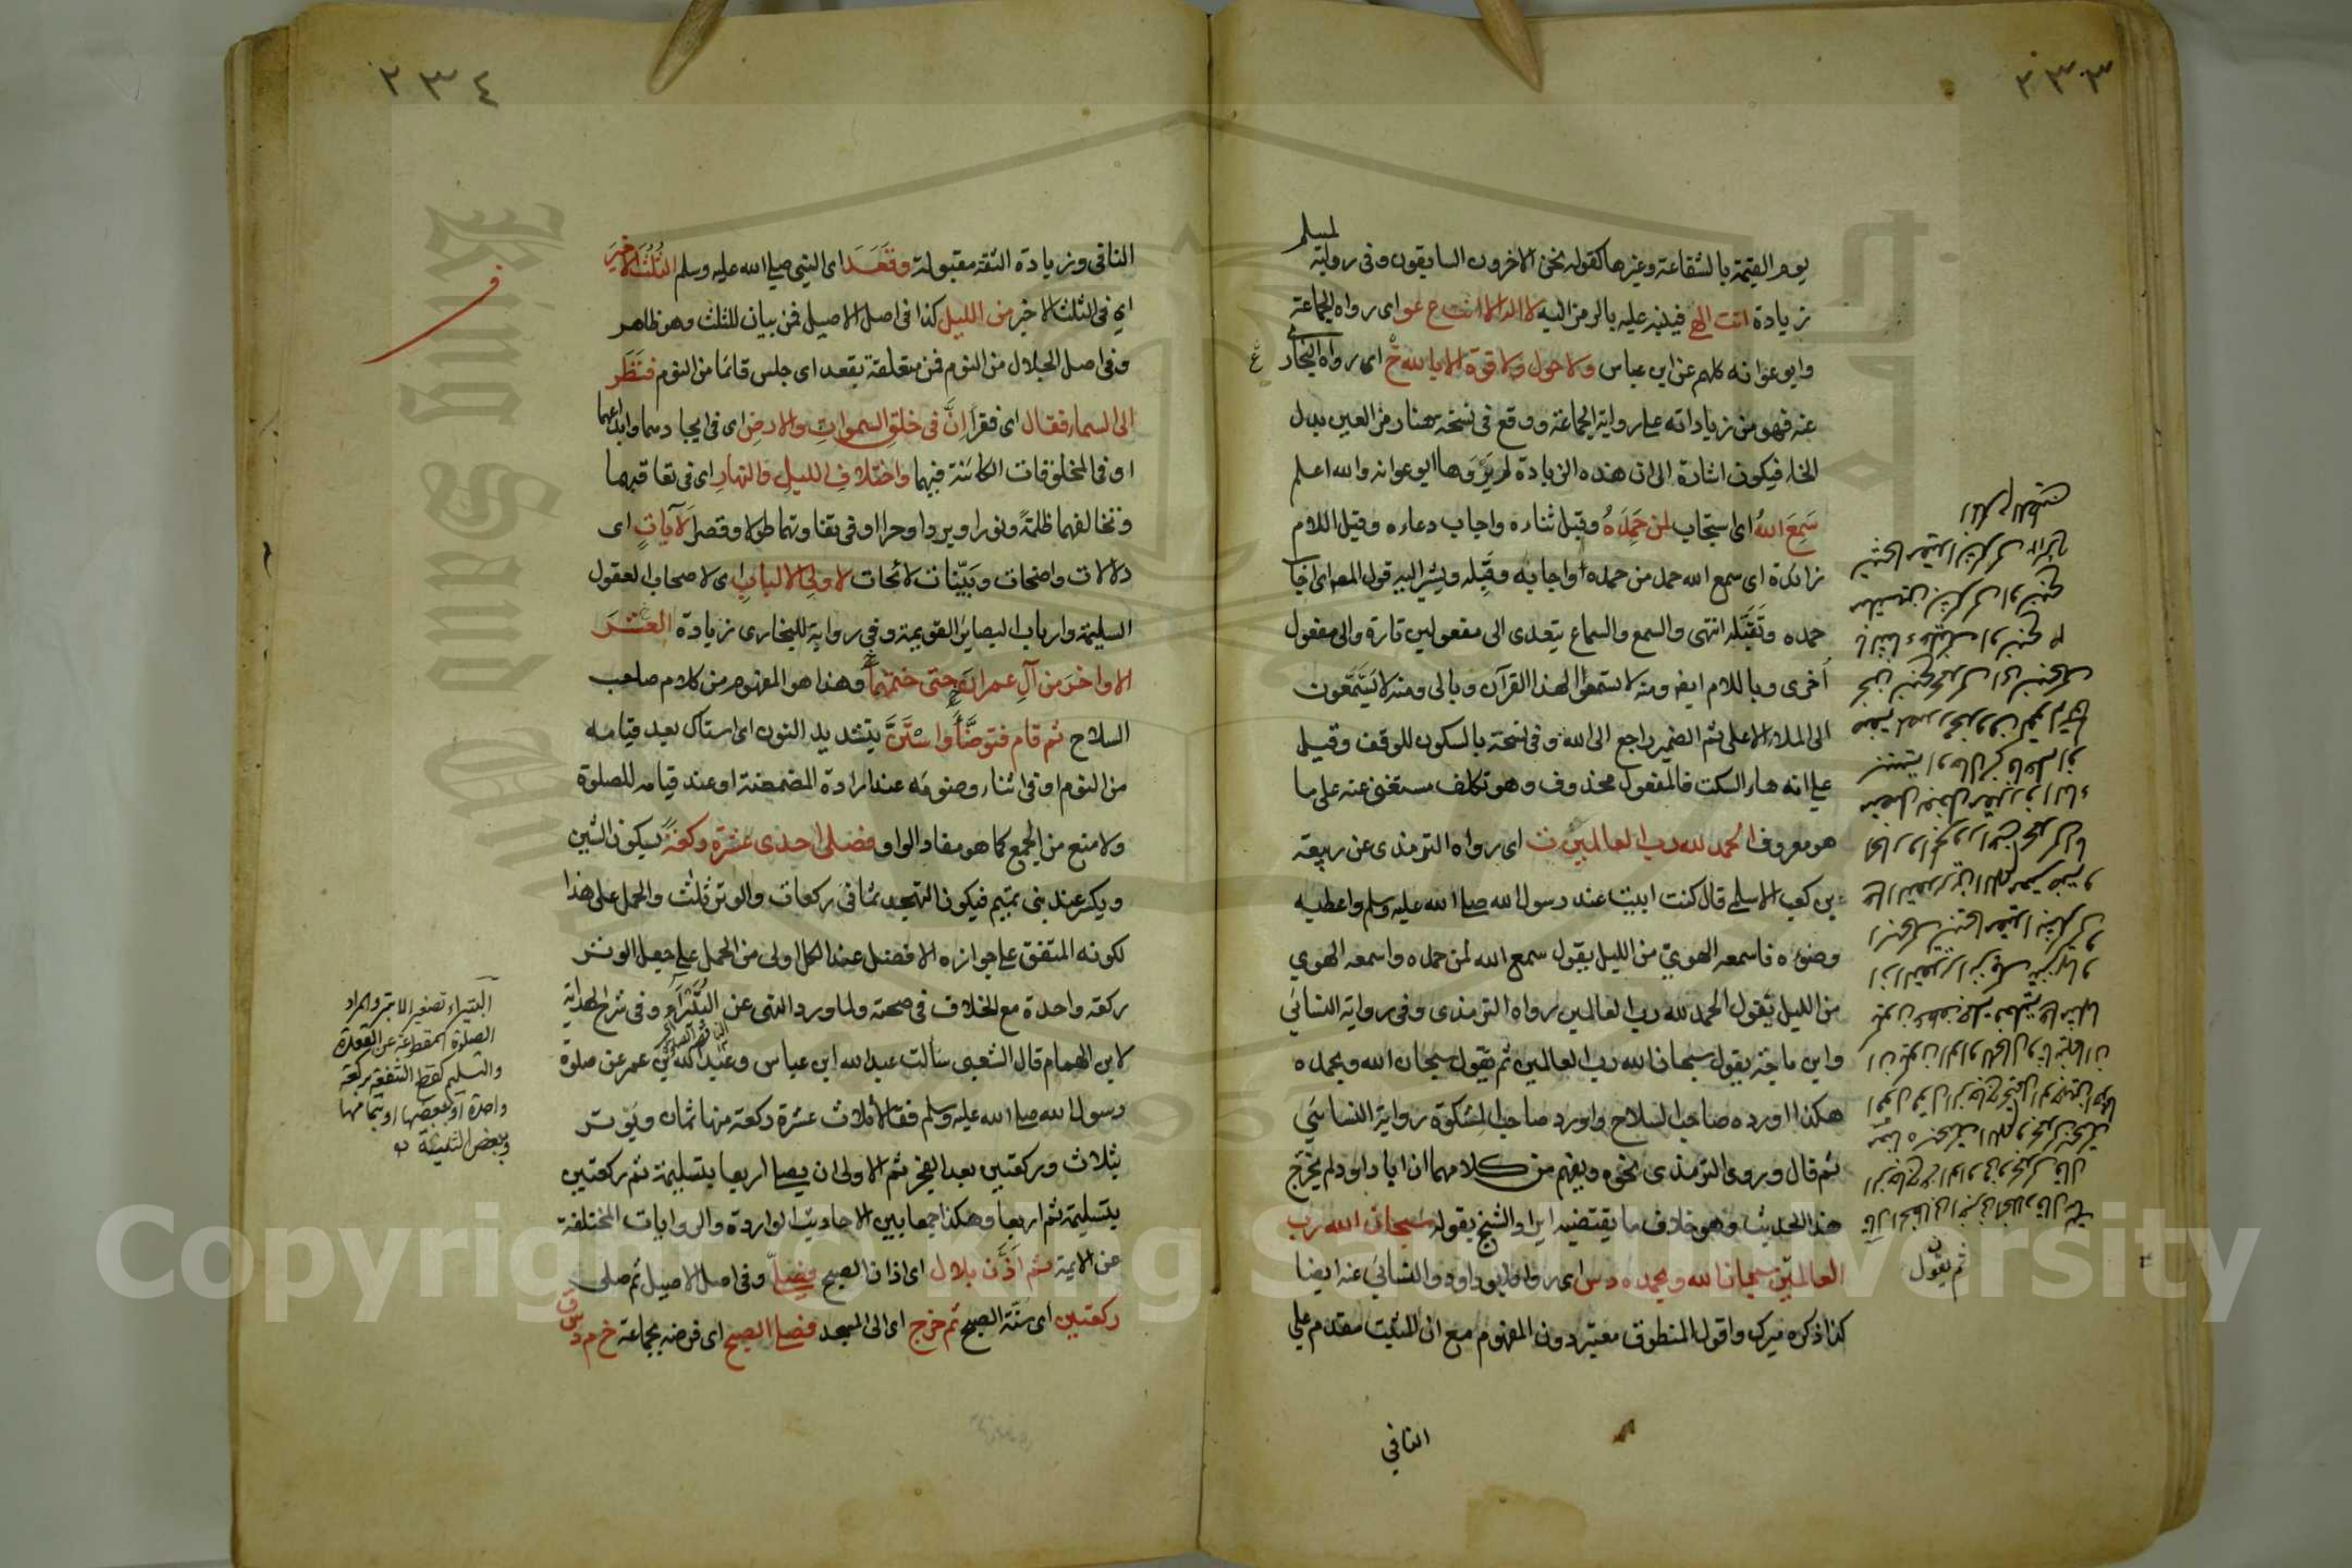 ٢٣٣
لمسلم
يوم القيمة بالشفاعة وغيرها كقوله نحن الاخرون السابقون وفى رواية
زيادة انت الهى فينبه عليه بالرمز النبيه لا اله الا انت ع عو اى رواه الجماعة
وابو عوانه كلهم عن ابن عباس ولا حول ولا قوة الا بالله خ اى رواه البخارى
عنه فهو من زياداته على رواية الجماعة ووقع فى نسخة سهنا رمز العين بدل
الخاء فيكون اشارة الى ان هذه الزيادة لم يروها ابو عوانه والله اعلم
سَمِعَ اللهُ اى استجاب لمن حَمِدَهُ وقيل ثناءه واجاب دعاءه وقيل اللام
زائدة اى سمع الله حمد من حمده اواجابه وقبله ويشير اليه قول المص اى اجاب
حمده وتقبّله انتهى والسمع والسماع يتعدى الى مفعولين تارة والى مفعول
أخرى وباللام ايض ومنه لا تسمعوا لهذا القرآن وبالى ومنه لا يَسَّمَّعون
الى الملاء الاعلى ثم الضمير راجع الى الله وفى نسخة بالسكون للوقف وقيل
على انه هاء السكت فالمفعول محذوف وهو تكلف مستغنى عنه على ما
هو معروف الحمد لله رب العالمين ت اى رواه الترمذى عن ربيعة
بن كعب الاسلمى قال كنت ابيت عند رسول الله صلى الله عليه وسلم واعطيه
وضوءه فاسمعه الهوى من الليل يقول سمع الله لمن حمده واسمعه الهوي
من الليل يقول الحمد لله رب العالمين رواه الترمذى وفى رواية النسائي
وابن ماجة يقول سبحان الله رب العالمين ثم يقول سبحان الله وبحمده
هكذا اورده صاحب السلاح واورد صاحب المشكوة رواية النسائي
ثم قال وروى الترمذى نحوه ويفهم من كلامهما ان ابا داود لم يخرج
هذا الحديث وهو خلاف ما يقتضيه ايراد الشيخ بقوله سبحان الله رب
العالمين سبحان الله وبحمده د س اى رواه ابو داود والنسائي عنه ايضا
كذا ذكره ميرك واقول المنطوق معتبر دون المفهوم مع ان المثبت مقدم على
ثم يقول
النافى
٢٣٤
النافى وزيادة الثقة مقبولة وقَعَدَ اى النبى صلى الله عليه وسلم الثُلُثَ الاخيرَ
اى فى الثلث الاخير من الليل كذا فى اصل الاصيل فمن بيان للثلث وهو ظاهر
وفى اصل الجلال من النوم فمن متعلقة بقعد اى جلس قائما من النوم فنَظَر
الى السماء فقال اى فقرأ اِنَّ فى خلق السموات والارض اى فى ايجادهما وابداعهما
او فى المخلوقات الكائنة فيهما واختلافِ الليلِ والنهارِ اى فى تعاقبهما
وتخالفهما ظلمةً ونورا وبردا وحرا او فى تفاوتهما طولا وقصرا لَآياتٍ اى
دلالات واضحات وبَيّنات لائحات لاولى الالباب اى لاصحاب العقول
السليمة وارباب البصاير القويمة وفى رواية للبخارى زيادة العشرَ
الاواخرَ من آلِ عمران حتى ختمها وهذا هو المفهوم من كلام صاحب
السلاح ثم قام فتوضَّأ واستَنَّ بتشديد النون اى استاك بعد قيامه
من النوم او فى اثناء وضوءه عند ارادة المضمضة او عند قيامه للصلوة
ولا منع من الجمع كما هو مفاد الواو فصلى احدى عشرة ركعةً بسكون الشين
ويكسر عند بنى تميم فيكون التهجد ثمانى ركعات والوتر ثلث والحمل على هذا
لكونه المتفق على جوازه الافضل عند الكل اولى من الحمل على جعل الوتر
ركعة واحدة مع الخلاف فى صحته ولما ورد النهى عن البُتَيْراءِ وفى شرح الهداية
لابن الهمام قال الشعبى سألت عبد الله ابن عباس وعبد الله بن عمر عن صلوة
رسول الله صلى الله عليه وسلم فقالا ثلاث عشرة ركعة منها ثمان ويوتر
بثلاث وركعتين بعد الفجر ثم الاولى ان يصلى اربعا بتسليمة ثم ركعتين
بتسليمة ثم اربعا وهكذا جمعا بين الاحاديث الواردة والروايات المختلفة
عن الايمة ثم أَذَّنَ بلال اى اذان الصبح فصلّى وفى اصل الاصيل ثم صلى
ركعتين اى سنَّة الصبح ثم خرج اى الى المسجد فصلى الصبح اى فرضه بجماعة خ م د س ق
البتيراء تصغير الابتر والمراد
الصلوة المقطوعة عن القعدة
والتسليم
واحدة او بعضها او بتمامها
Copyright © King Saud University
King Saud University
1957